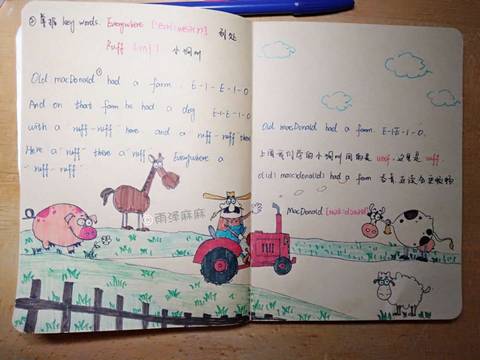 ② 掌握 key words. Everywhere 到处
Ruff 小狗叫
Old macDonald had a farm. E-I-I-O
And on that farm he had a dog E-I-E-I-O
with a "ruff-ruff" here and a "ruff-ruff" there
Here a "ruff" there a "ruff". Everywhere a
"ruff-ruff"
Old macDonald had a farm. E-I-I-O.
上周我们学的小狗叫用的是 woof. 这里是 ruff.
old macdonald had a farm
MacDonald
雨泽麻麻